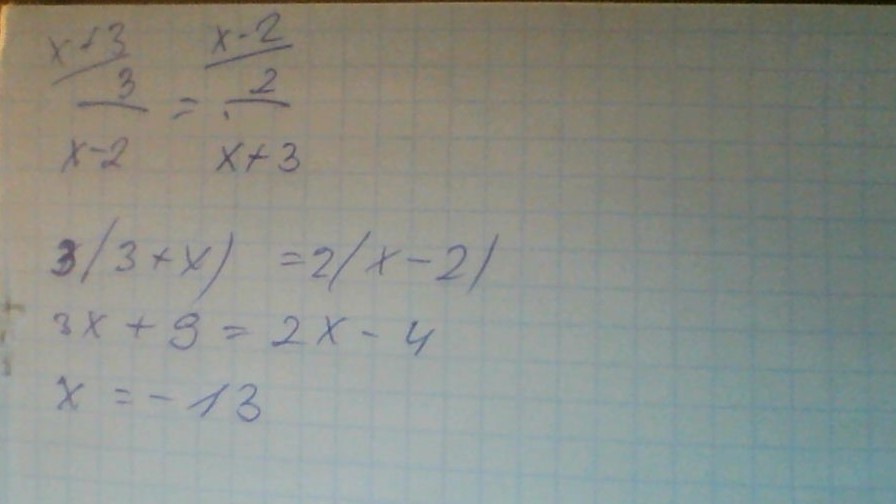 x+3 x-2
3 = 2
x-2 x+3
3(3+x) =2(x-2)
3x+9=2x-4
x=-13